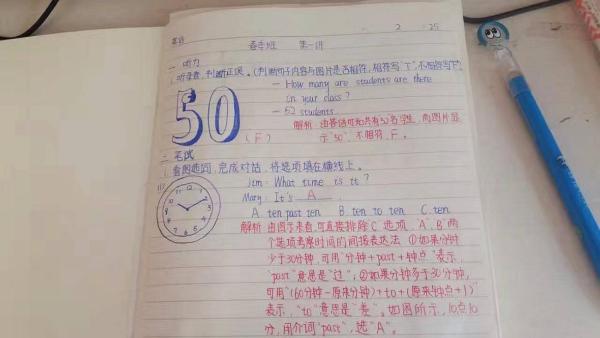 英语
2 25
春季班 第一讲
一 听力
1. 听录音，判断正误。(判断句子内容与图片是否相符，相符写"T",不相符写"F"
— How many are students are there
in your class?
— 52 students.
50
(F)
解析：由答语可知共有52名学生，而图片显
示"50"，不相符，F。
二 笔试
1. 看图选词，完成对话，将选项填在横线上。
(1)
12 1 2 3 4 5 6 7 8 9 10 11
Jim: What time is it?
Mary: It's A.
A. ten past ten B. ten to ten C. ten
解析 由图示来看，可直接排除"C"选项，"A"、"B"两
个选项考察时间的间接表达法 ①如果分钟
少于30分钟，可用"分钟+past+钟点"表示，
"past"意思是"过"；②如果分钟多于30分钟，
可用"(60分钟-原来分钟)+to+(原来钟点+1)"
表示，"to"意思是"差"。如图所示，10点10
分，用介词"past"，选"A"。